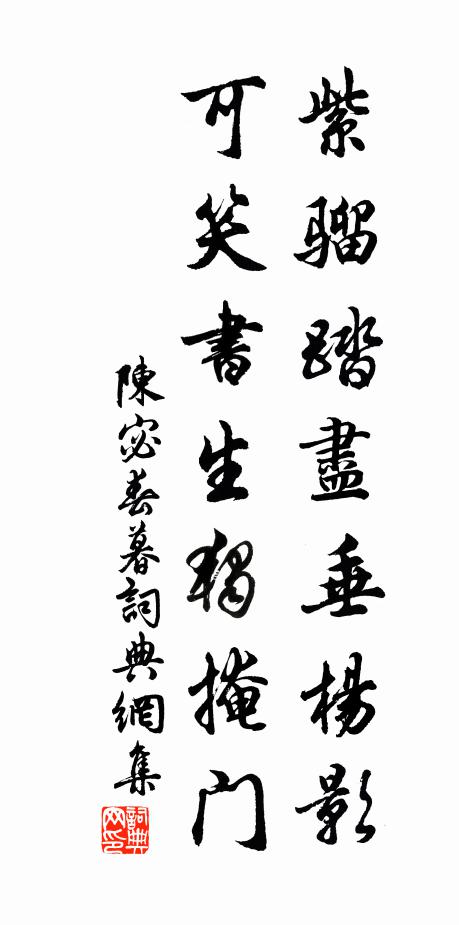 紫騮踏盡垂楊影
可笑書生獨掩門
陳宓春暮詞典網集
詞典网印